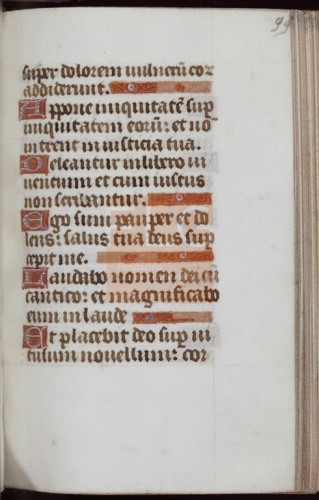 99
super dolorem uulnerū eor
addiderunt.
Appone iniquitatē sup
iniquitatem eorū: et nō
intrent in iusticia tua.
Deleantur in libro ui
uentium et cum iustis
non scribantur.
Ego sum pauper et do
lens: salus tua deus sup
cepit me.
Laudabo nomen dei cū
cantico: et magnificabo
eum in laude
Et placebit deo sup ui
tulum nouellum: cor